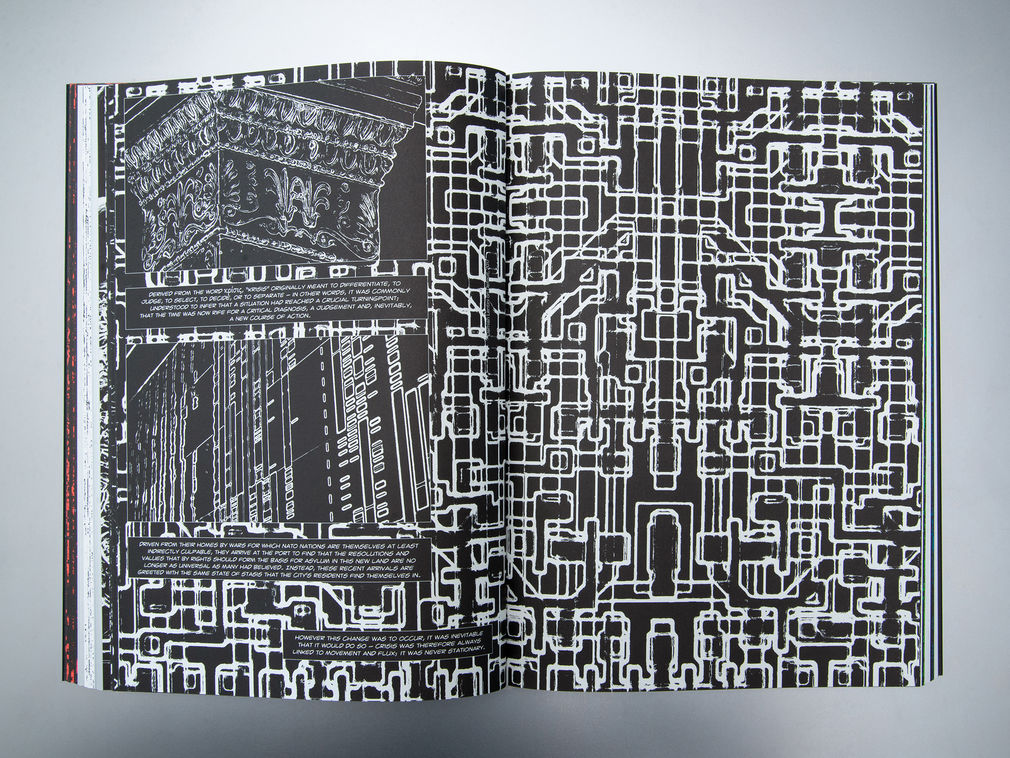 DERIVED FROM THE WORD κρίσις, "KRISIS" ORIGINALLY MEANT TO DIFFERENTIATE, TO
JUDGE, TO SELECT, TO DECIDE, OR TO SEPARATE – IN OTHER WORDS, IT WAS COMMONLY
UNDERSTOOD TO INFER THAT A SITUATION HAD REACHED A CRUCIAL TURNINGPOINT;
THAT THE TIME WAS NOW RIFE FOR A CRITICAL DIAGNOSIS, A JUDGEMENT AND, INEVITABLY,
A NEW COURSE OF ACTION.
DRIVEN FROM THEIR HOMES BY WARS FOR WHICH NATO NATIONS ARE THEMSELVES AT LEAST
INDIRECTLY CULPABLE, THEY ARRIVE AT THE PORT TO FIND THAT THE RESOLUTIONS AND
VALUES THAT BY RIGHTS SHOULD FORM THE BASIS FOR ASYLUM IN THIS NEW LAND ARE NO
LONGER AS UNIVERSAL AS MANY HAD BELIEVED. INSTEAD, THESE RECENT ARRIVALS ARE
GREETED WITH THE SAME STATE OF STASIS THAT THE CITY'S RESIDENTS FIND THEMSELVES IN.
HOWEVER THIS CHANGE WAS TO OCCUR, IT WAS INEVITABLE
THAT IT WOULD DO SO – CRISIS WAS THEREFORE ALWAYS
LINKED TO MOVEMENT AND FLUX; IT WAS NEVER STATIONARY.